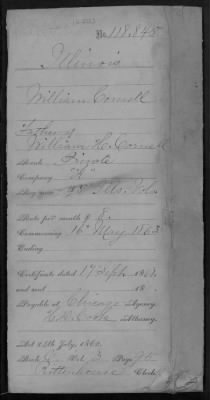 No. 118,845
Illinois
William Cornell
Father
William H. Cornell
Rank Private
Company "H"
Regiment 93" Ills. Vols.
Rate per month $ 8.
Commencing 16" May 1863
Ending
Certificate dated 17 Sept. 1868.
and sent 18 .
Payable at Chicago Agency.
H. D. Cook Attorney.
Act 14th July, 1862.
Book Vol. 3 Page 95
Rittenhouse Clerk.